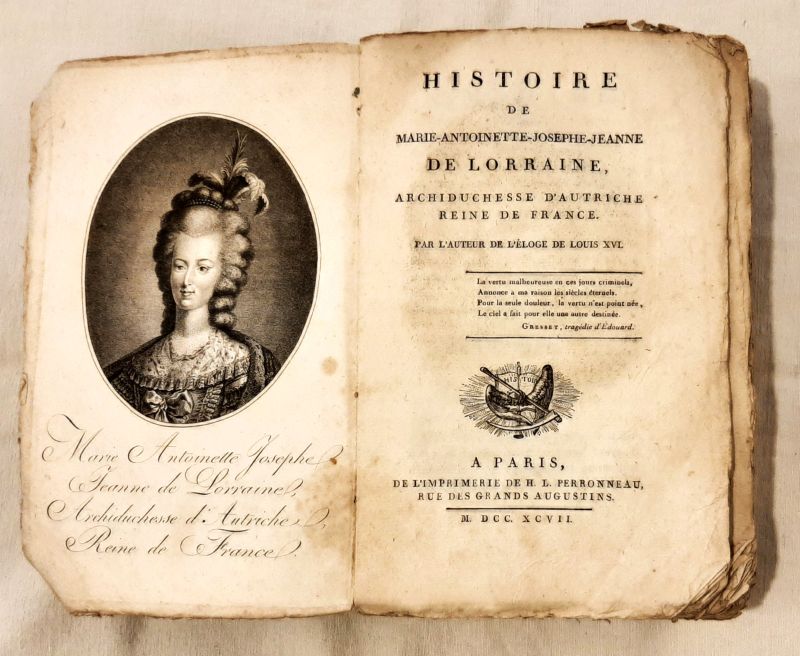 Marie Antoinette Josephe
Jeanne de Lorraine,
Archiduchesse d'Autriche,
Reine de France.
HISTOIRE
DE
MARIE-ANTOINETTE-JOSEPHE-JEANNE
DE LORRAINE,
ARCHIDUCHESSE D'AUTRICHE
REINE DE FRANCE.
PAR L'AUTEUR DE L'ÉLOGE DE LOUIS XVI.
La vertu malheureuse en ces jours criminels,
Annonce à ma raison les siècles éternels.
Pour la seule douleur, la vertu n'est point née,
Le ciel a fait pour elle une autre destinée.
GRESSET, tragédie d'Édouard.
HISTOIRE
A PARIS,
DE L'IMPRIMERIE DE H. L. PERRONNEAU,
RUE DES GRANDS AUGUSTINS.
M. DCC. XCVII.